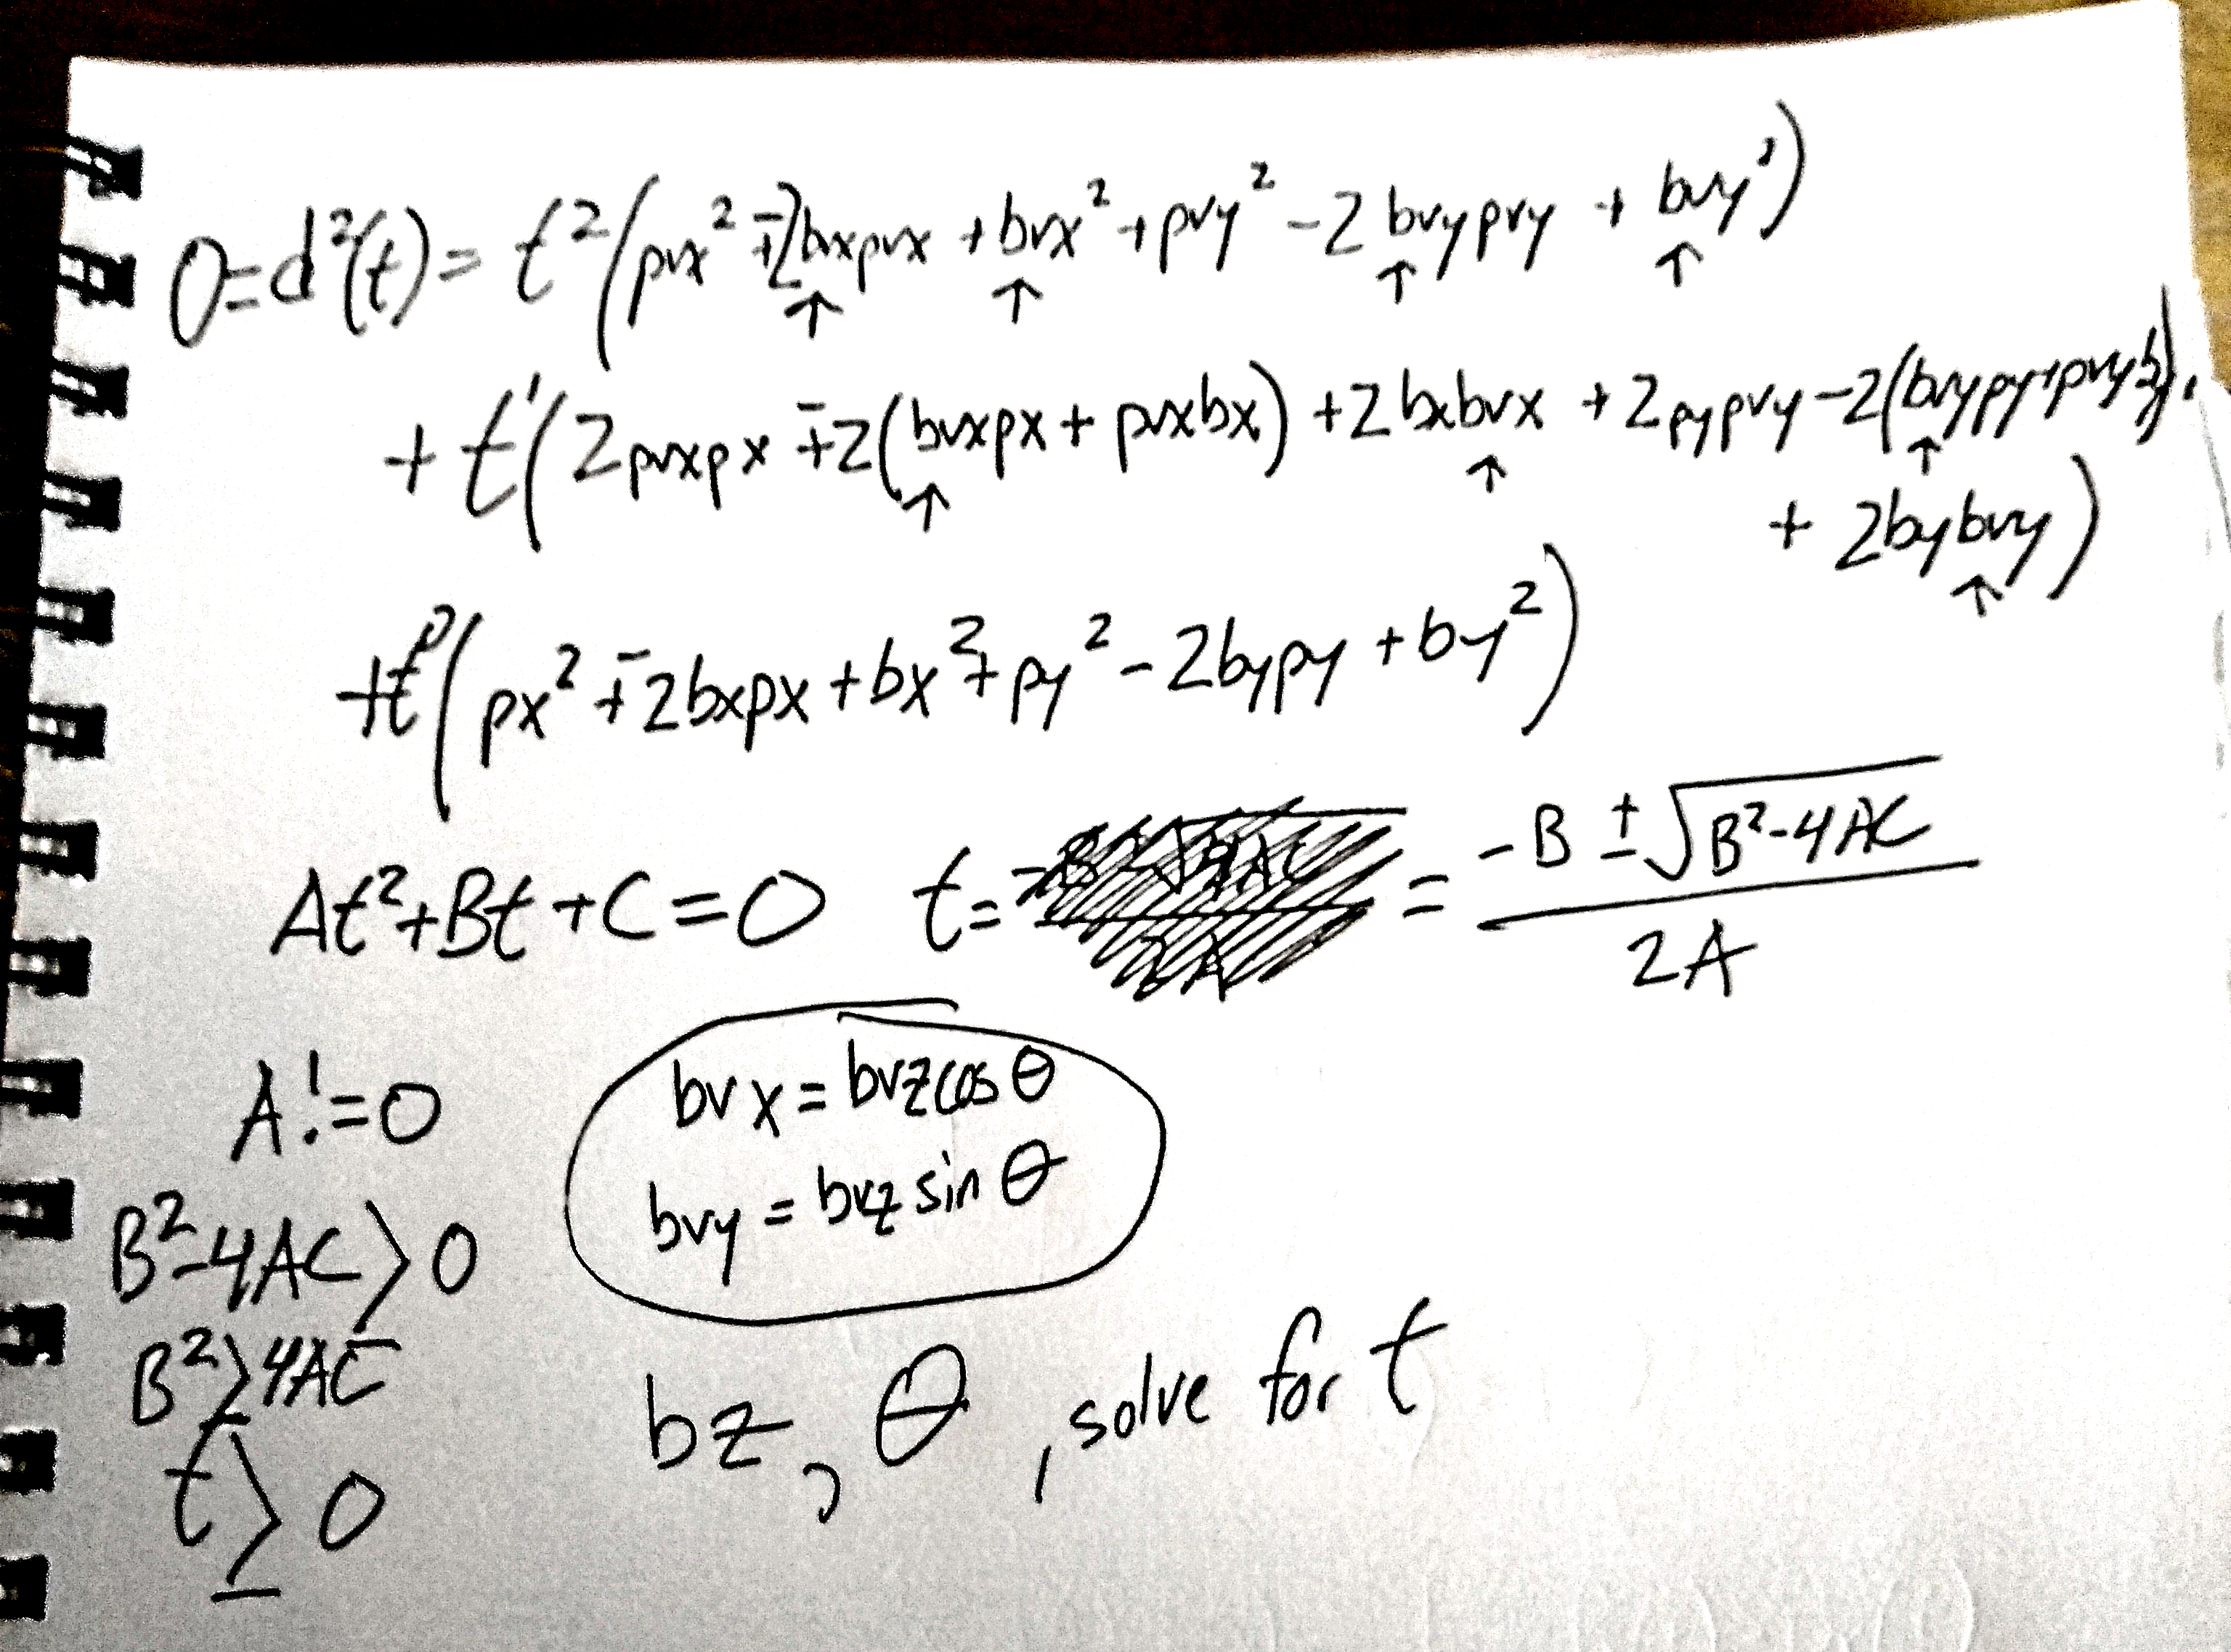 0=d²(t)= t²(pvx² ∓2bvxpvx +bvx²+pvy² -2bvypvy + bvy²)
↑ ↑ ↑ ↑
+ t¹(2pvxpx ∓2(bvxpx + pvxbx) +2bxbvx + 2pypvy -2(bvypy+pvyby)
↑ ↑ ↑
+ 2bybvy)
↑
+t⁰(px² ∓2bxpx +bx²+py² -2bypy +by²)
At²+Bt+C=0 t= = -B ± √B²-4AC / 2A
A!=0
bvx = bvzcosθ
bvy = bvz sinθ
B²-4AC≥0
B²≥4AC
bz, θ, solve for t
t≥0